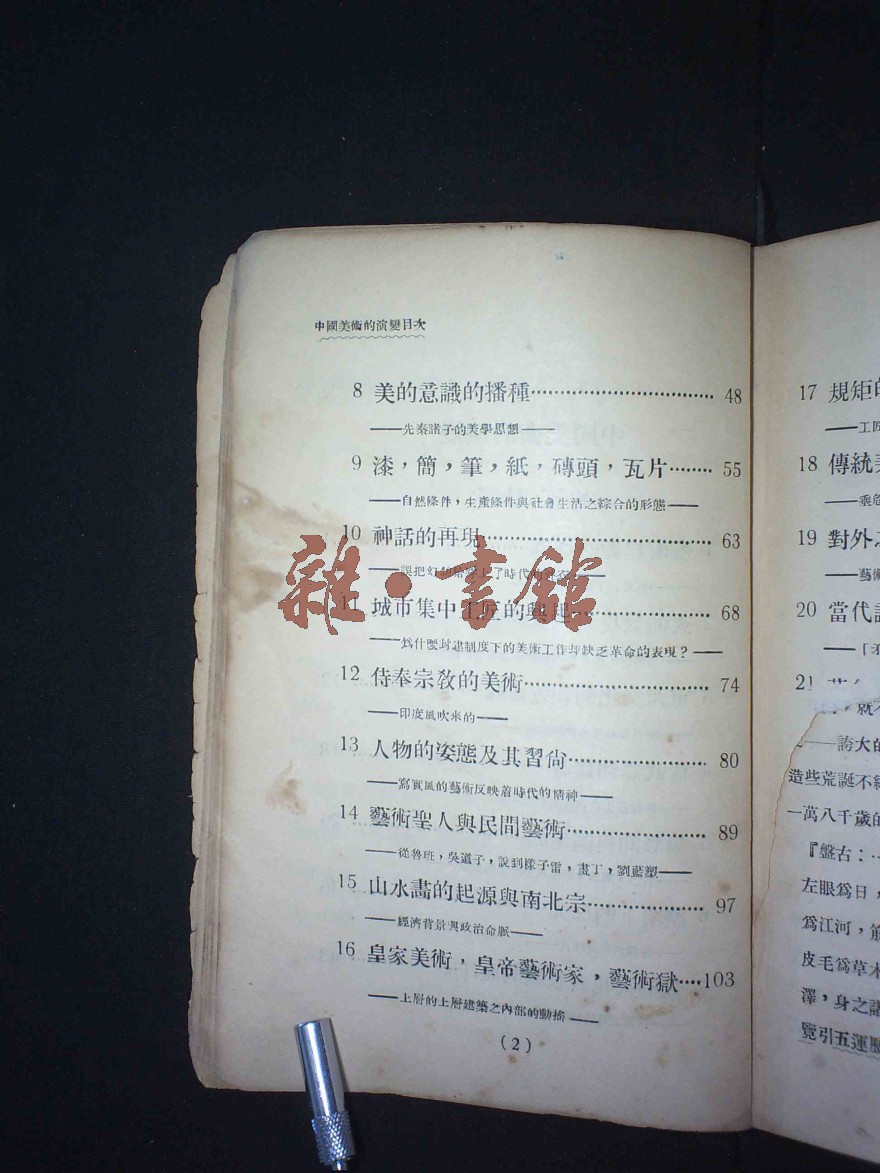 中國美術的演變目次
8 美的意識的播種 48
——先秦諸子的美學思想——
9 漆，簡，筆，紙，磚頭，瓦片 55
——自然條件，生產條件與社會生活之綜合的形態——
10 神話的再現 63
——誤把好 了時代
11 城市集中工匠的興起 68
——爲什麼封建制度下的美術工作却缺乏革命的表現？——
12 侍奉宗教的美術 74
——印度風吹來的——
13 人物的姿態及其習尙 80
——寫實風的藝術反映着時代的精神——
14 藝術聖人與民間藝術 89
——從魯班，吳道子，說到陳子雷，畫丁，劉藍塑——
15 山水畫的起源與南北宗 97
——經濟背景與政治命脈——
16 皇家美術，皇帝藝術家，藝術獄 103
——上層的上層建築之內部的動搖——
(2)
雜·書館
17 規矩的
——工匠
18 傳統美
——乘危
19 對外
——藝術
20 當代
——「
21
就
——誇大的
造些荒誕不
一萬八千歲的
『盤古：
左眼爲日，
爲江河，
皮毛爲草木
澤，身之諸
覽引五運歷